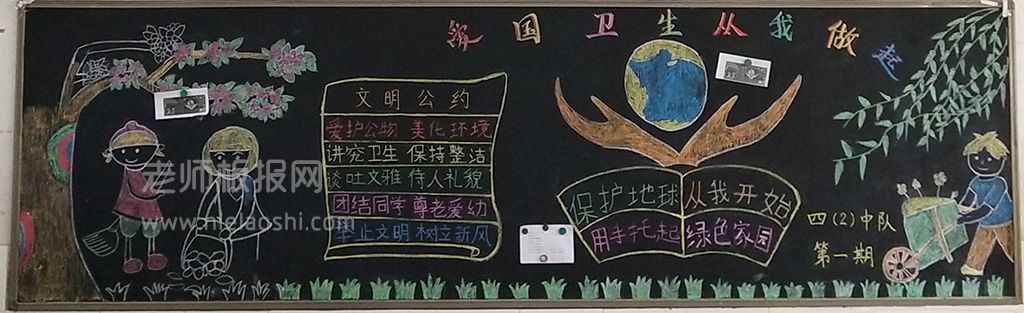 爱国卫生从我做起
文明公约
爱护公物 美化环境
讲究卫生 保持整洁
谈吐文雅 待人礼貌
团结同学 尊老爱幼
举止文明 树立新风
保护地球 从我开始
用手托起 绿色家园
四(2)中队
第一期
老师板报网
www.nielaoshi.com